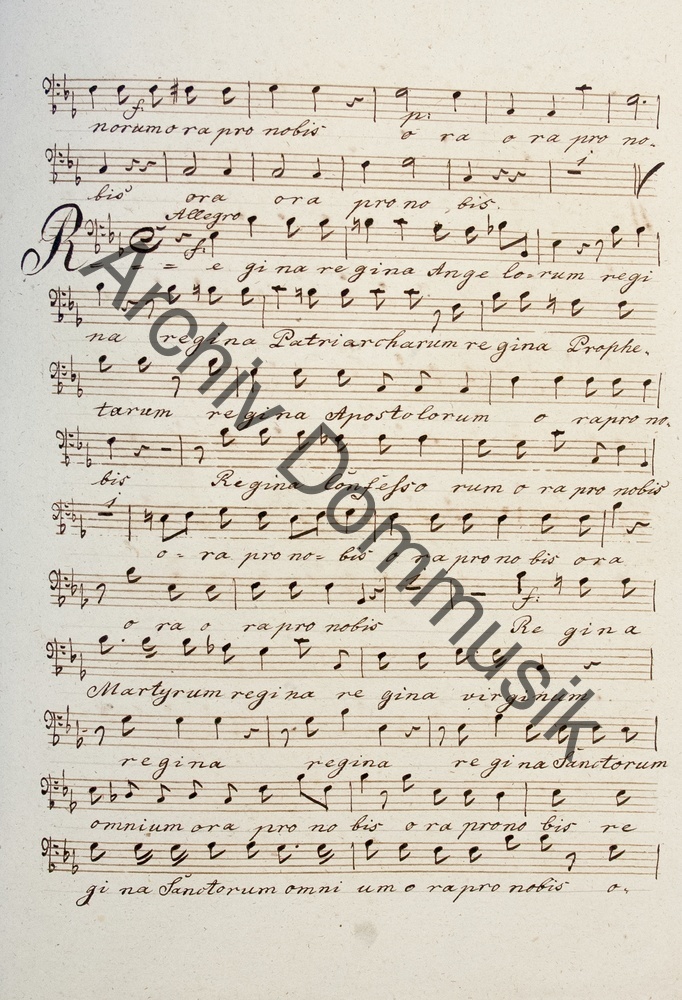 f:
p:
norum ora pro nobis o ra o ra pro no-
1
bis ora ora pro no bis
Allegro
f:
R - - - e gina regina Ange lo=rum regi
na regina Patriarcharum regina Prophe-
tarum regina Apostolorum o ra pro no-
bis Regina Confesso rum o ra pro nobis
1
o - ra pro no= bis o ra pro no bis ora
f:
o ra o ra pro nobis Re gina
Martyrum regina re gina virginum
regina regina regina Sanctorum
omnium ora pro no bis o ra pro no bis re
gi na Sanctorum omni um o ra pro nobis o-
Archiv Dommusik